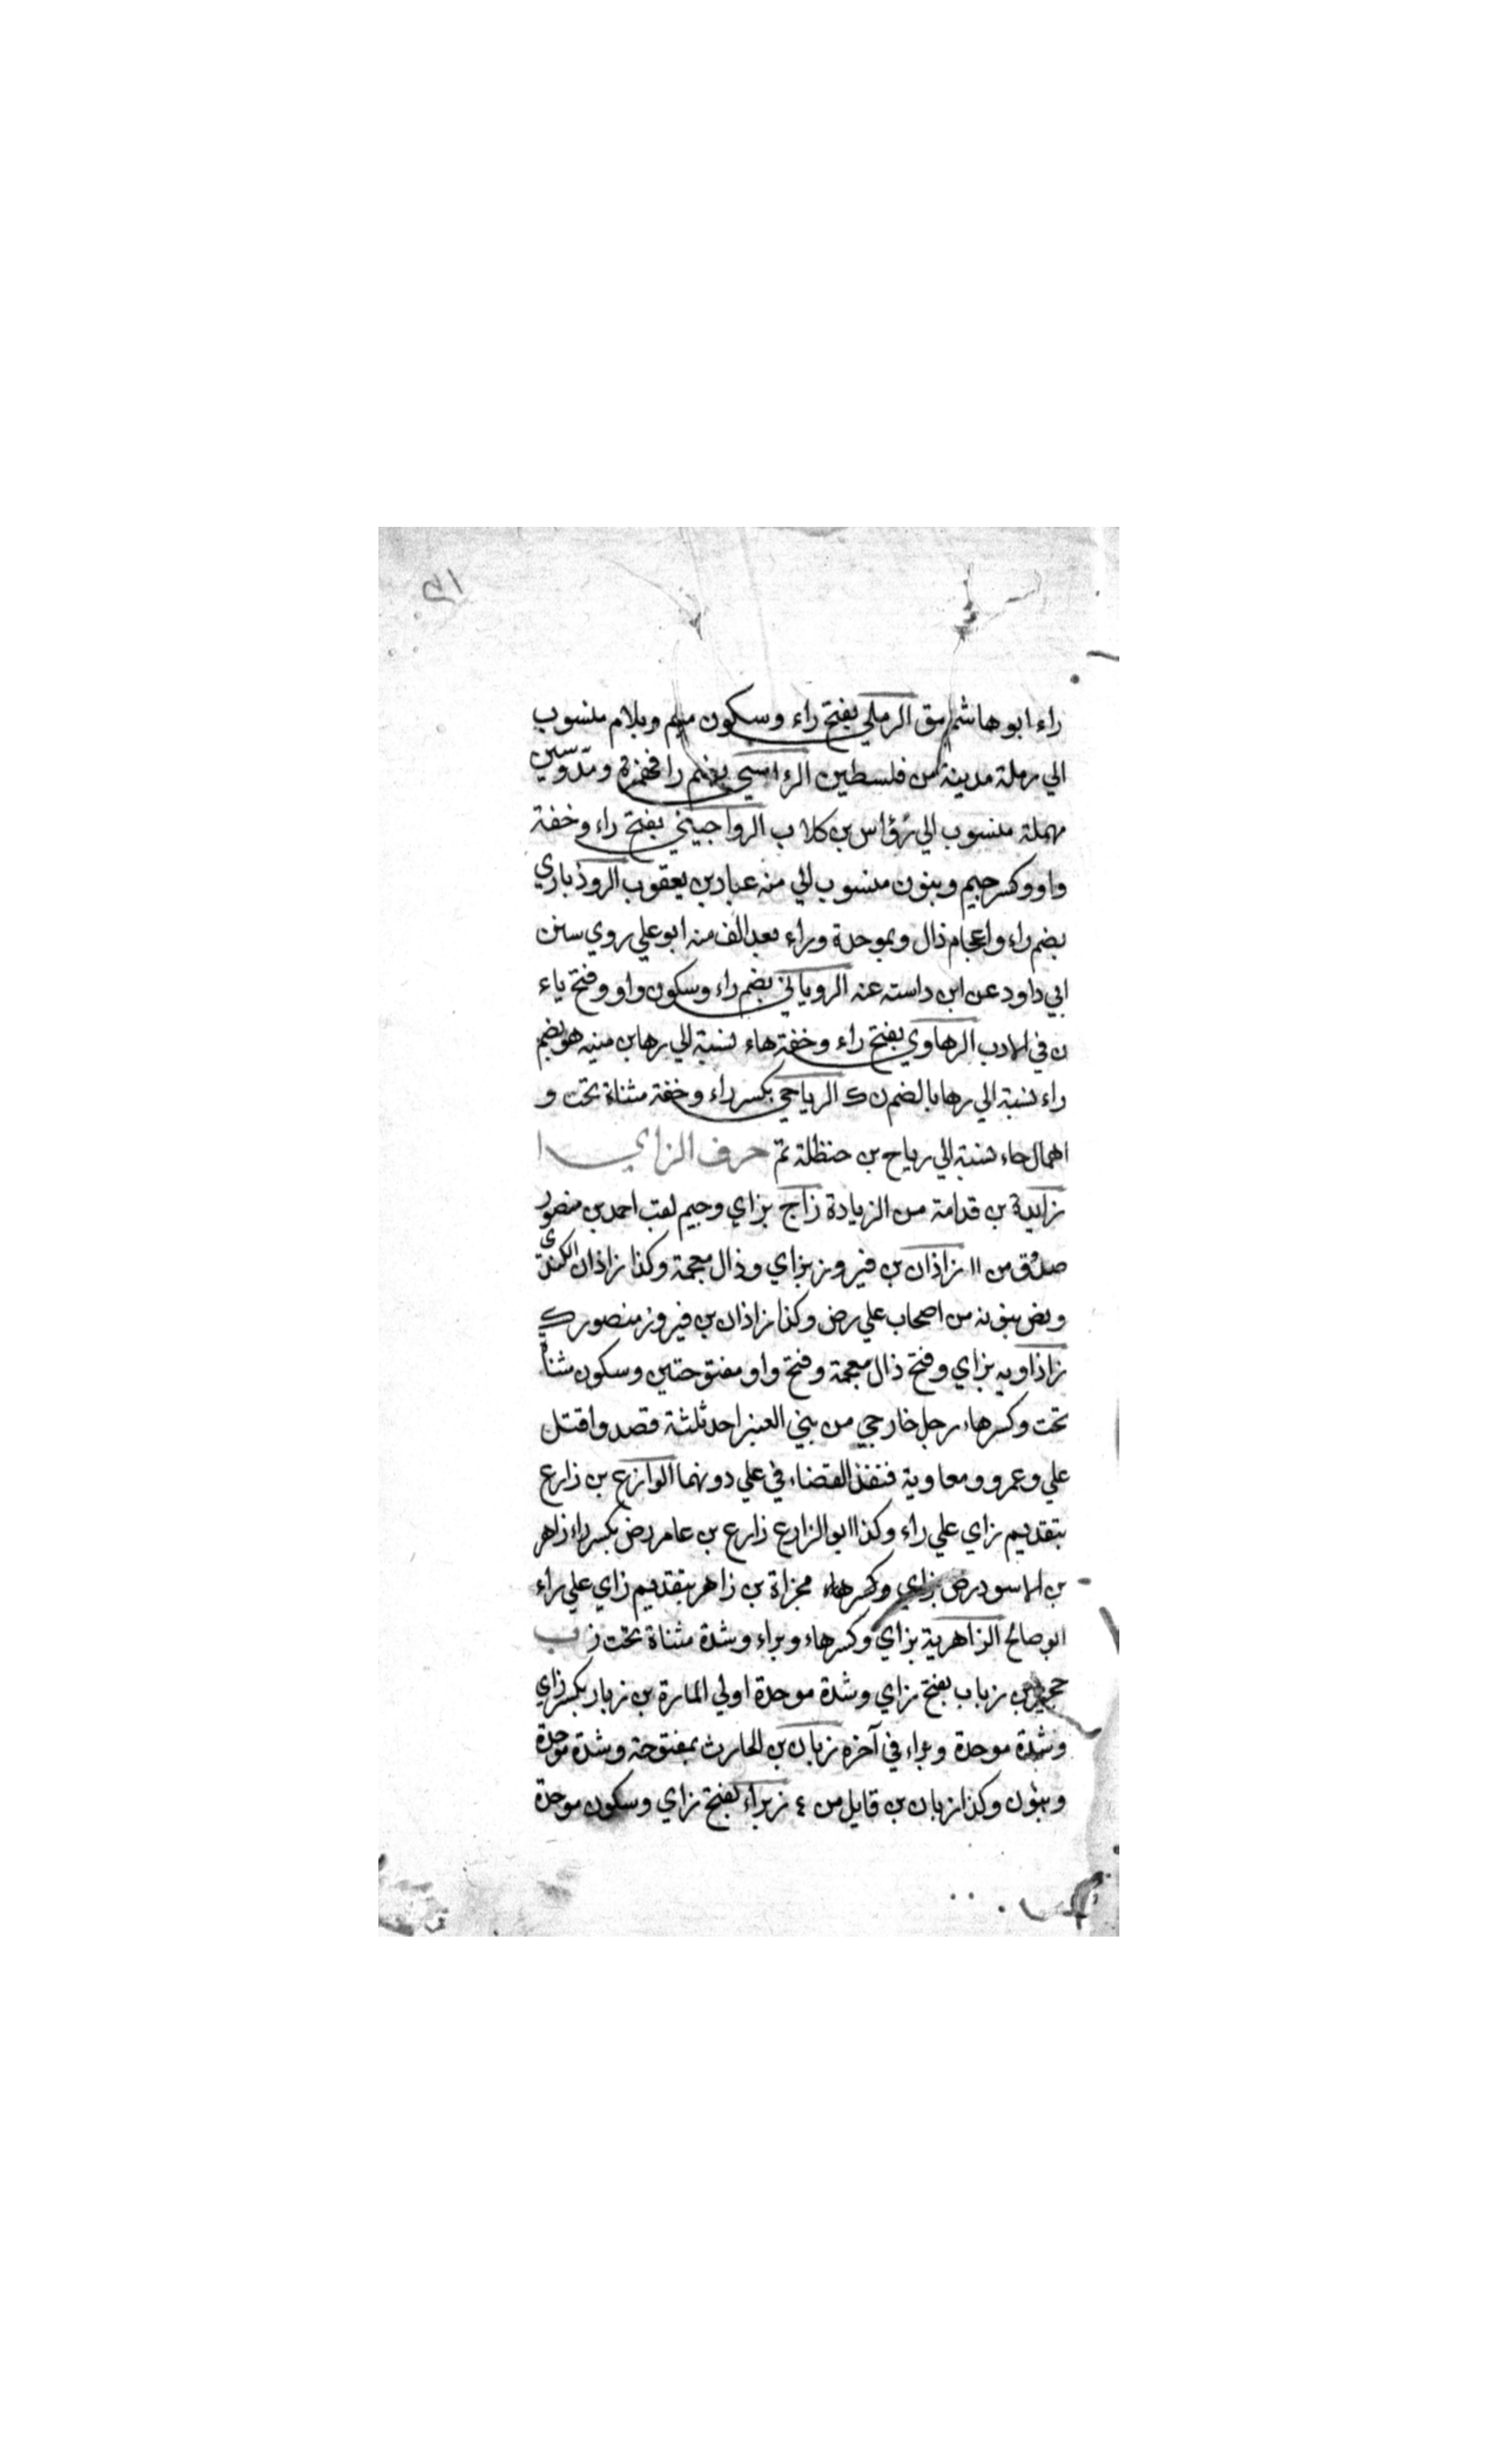 راء ابو هاشم مق الرملي بفتح راء وسكون ميم وبلام منسوب
الي رملة مدينة من فلسطين الرءاسي بضم را فهمزة ومدوسين
مهملة منسوب الي رؤاس بن كلاب الرواجيني بفتح راء وخفة
واو وكسر جيم وبنون منسوب الي منه عباد بن يعقوب الروذباري
بضم راء واعجام ذال وبموحدة وراء بعد الف منه ابو علي روي سنن
ابي داود عن ابن داسته عنه الروياني بضم راء وسكون واو وفتح ياء
ن في الادب الرهاوي بفتح راء وخفة هاء نسبة الي رها بن منبه هو بضم
راء نسبة الي رها بالضم ن ك الرياحي بكسر راء وخفة مثناة تحت و
اهمال حاء نسبة الي رياح بن حنظلة تم حرف الزاي ا
زايدة بن قدامة من الزيادة زاج بزاي وجيم لقب احمد بن منصور
صدوق من ١١ زاذان بن فيروز بزاي وذال معجمة وكذا زاذان الكندي
من اصحاب علي رض وكذا زاذان بن فيروز منصور ك
زاذاويه بزاي وفتح ذال معجمة وفتح واو مفتوحتين وسكون مثناة
تحت وكسر هاء رجل خارجي من بني العنبر احد ثلثة قصدوا قتل
علي وعمرو ومعاوية فنفذ القضاء في علي دونهما الوازع بن زارع
بتقديم زاي علي راء وكذا ابو الزارع زارع بن عامر رض بكسر راء زاهر
بن الاسود رض بزاي وكسر هاء مجزاة بن زاهر بتقديم زاي علي راء
ابو صالح الزاهرية بزاي وكسر هاء وبراء وشدة مثناة تحت ز ب
حجير بن زباب بفتح زاي وشدة موحدة اولي المارة بن زبار بكسر زاي
وشدة موحدة وبراء في آخره زبان بن الحارث بمفتوحة وشدة موحدة
وبنون وكذا زبان بن قايل من ٤ زبراء بفتح زاي وسكون موحدة